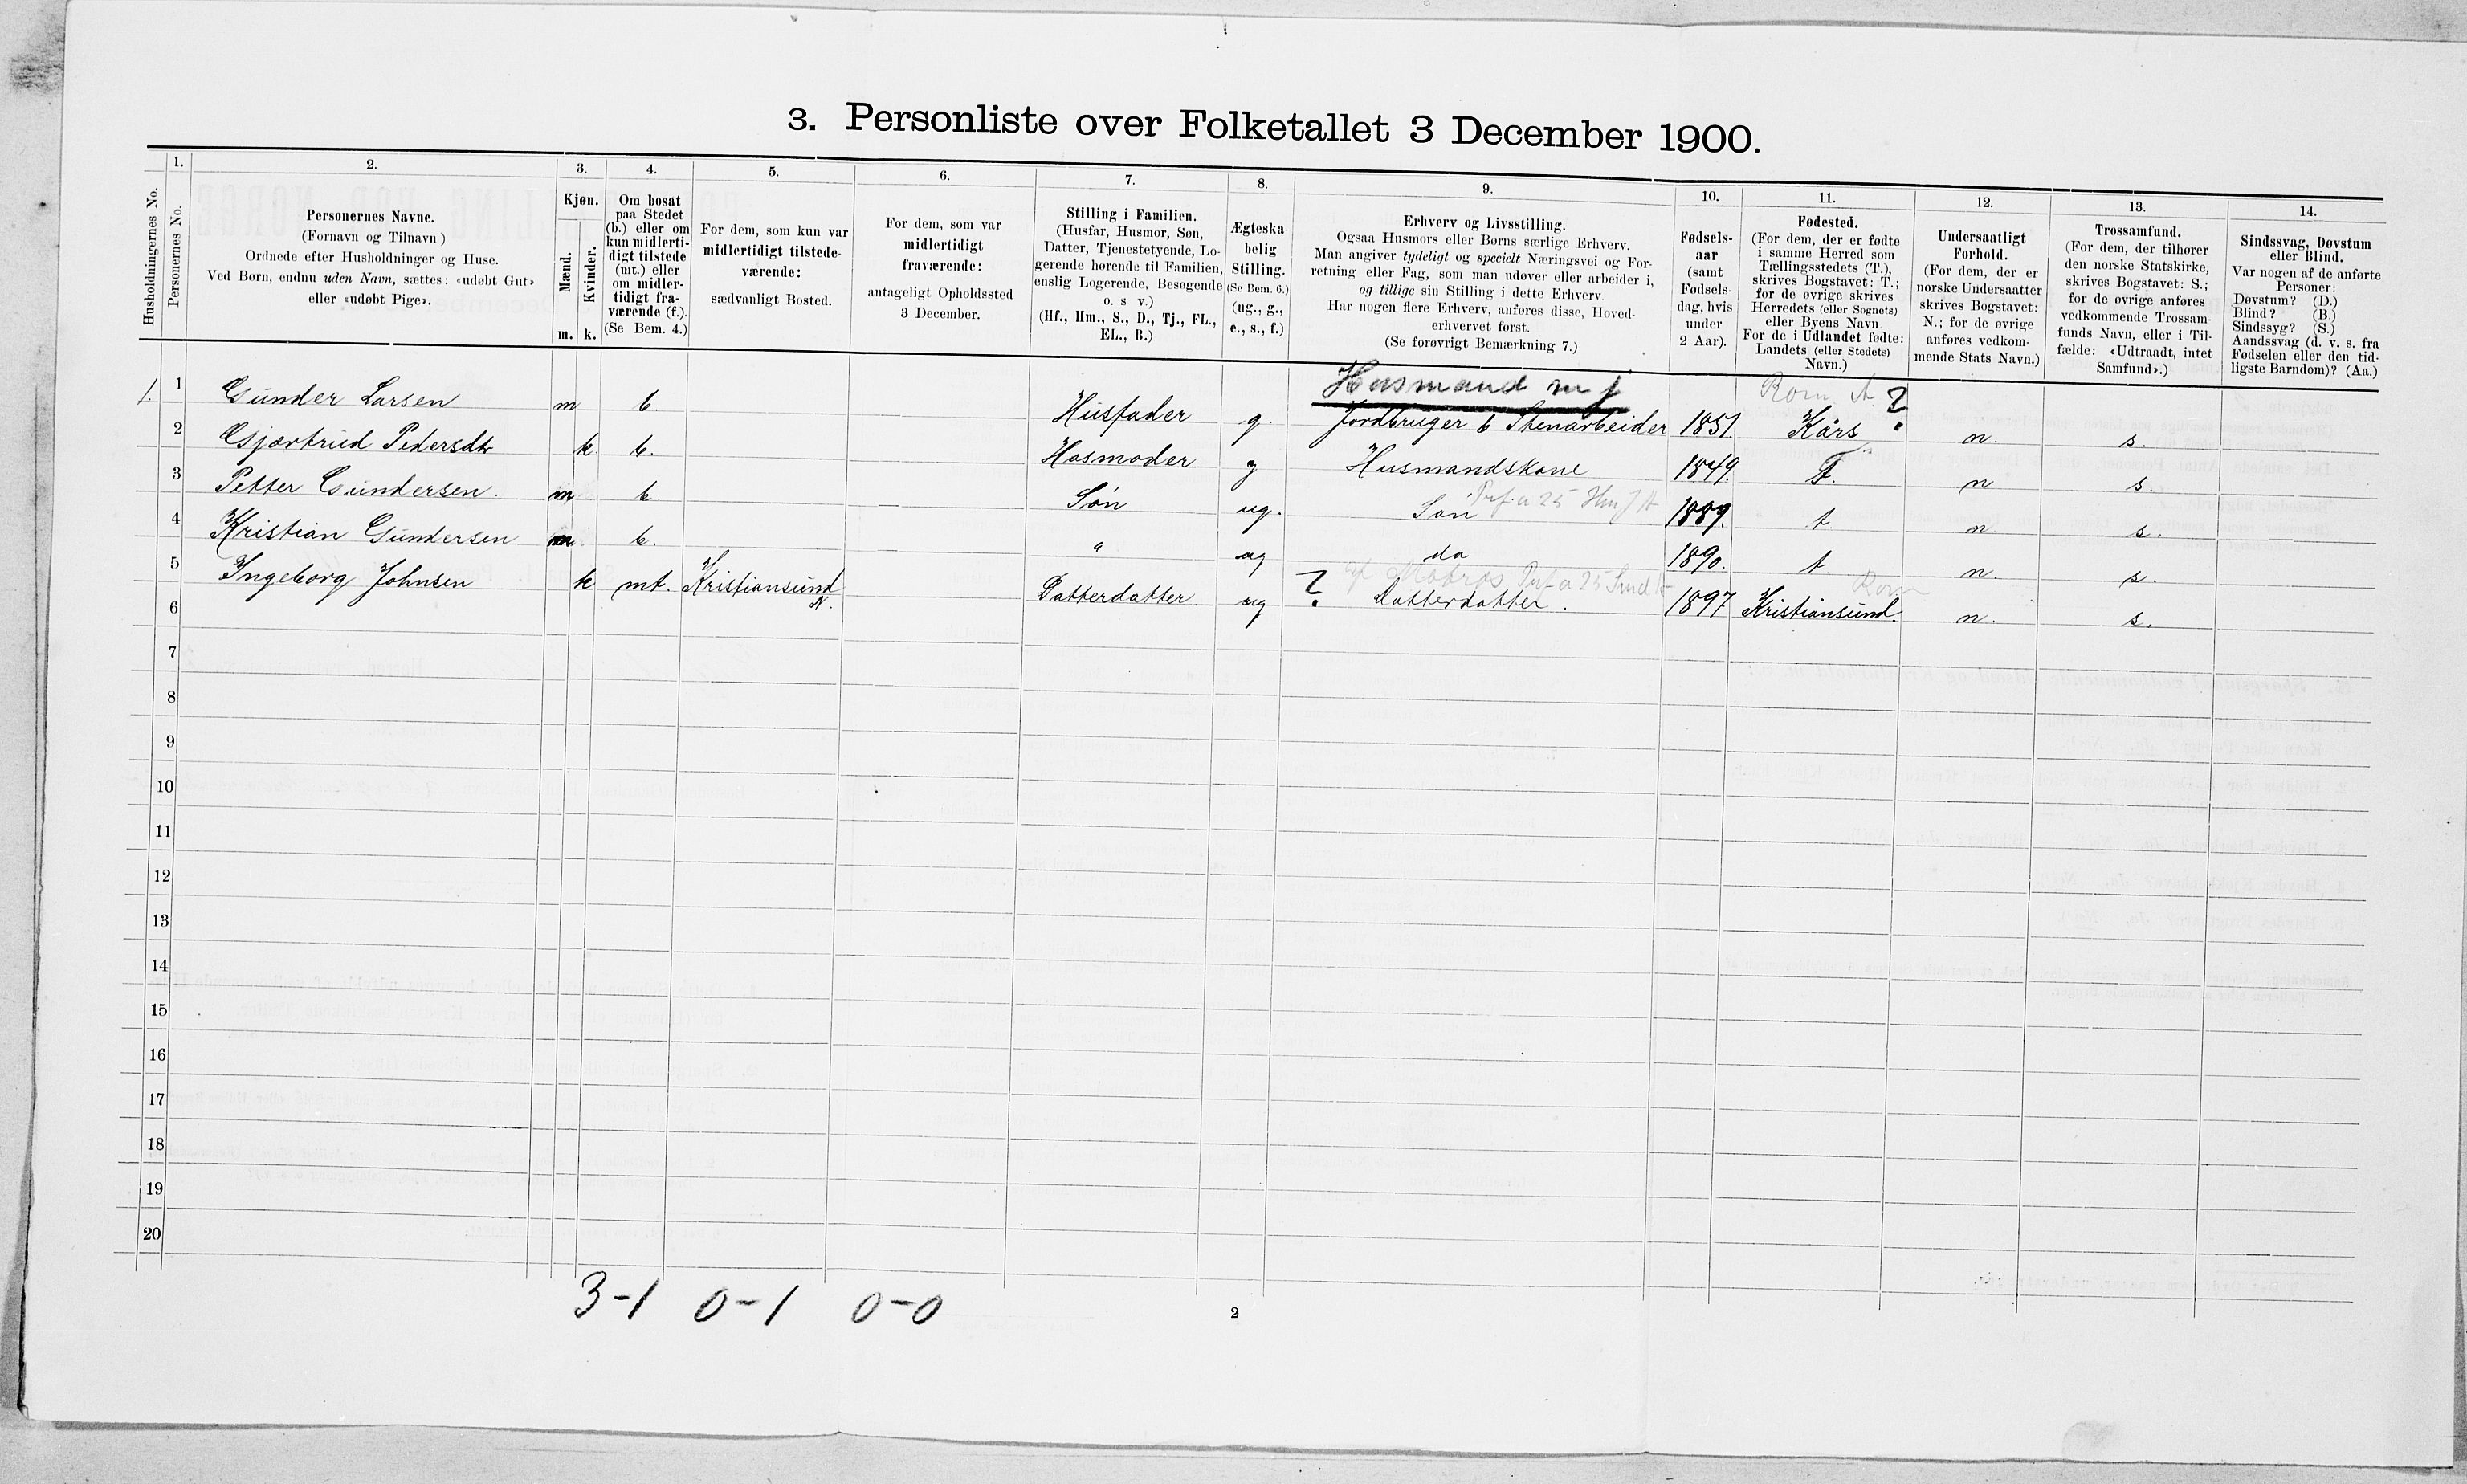 3. Personliste over Folketallet 3 December 1900.
Husholdningernes No.
1.
Personernes No.
2.
Personernes Navne.
(Fornavn og Tilnavn)
Ordnede efter Husholdninger og Huse.
Ved Børn, endnu uden Navn, sættes: «udøbt Gut»
eller «udøbt Pige».
3.
Kjøn.
Mænd.
Kvinder.
m. k.
4.
Om bosat
paa Stedet
(b.) eller om
kun midlerti-
digt tilstede
(mt.) eller
om midler-
tidigt fra-
værende (f.).
(Se Bem. 4.)
5.
For dem, som kun var
midlertidigt tilstede-
værende:
sædvanligt Bosted.
6.
For dem, som var
midlertidigt
fraværende:
antageligt Opholdssted
3 December.
7.
Stilling i Familien.
(Husfar, Husmor, Søn,
Datter, Tjenestetyende, Lo-
gerende hørende til Familien,
enslig Logerende, Besøgende
o. s v.)
(Hf., Hm., S., D., Tj., FL.,
EL., B.)
8.
Ægteska-
belig
Stilling.
(Se Bem. 6.)
(ug., g.,
e., s., f.)
9.
Erhverv og Livsstilling.
Ogsaa Husmors eller Børns særlige Erhverv.
Man angiver tydeligt og specielt Næringsvei og For-
retning eller Fag, som man udøver eller arbeider i,
og tillige sin Stilling i dette Erhverv.
Har nogen flere Erhverv, anføres disse, Hoved-
erhvervet først.
(Se forøvrigt Bemærkning 7.)
10.
Fødsels-
aar
(samt
Fødsels-
dag, hvis
under
2 Aar).
11.
Fødested.
(For dem, der er fødte
i samme Herred som
Tællingsstedets (T.),
skrives Bogstavet: T.;
for de øvrige skrives
Herredets (eller Sognets)
eller Byens Navn
For de i Udlandet fødte:
Landets (eller Stedets)
Navn.)
12.
Undersaatligt
Forhold.
(For dem, der er
norske Undersaatter
skrives Bogstavet:
N.; for de øvrige
anføres vedkom-
mende Stats Navn.)
13.
Trossamfund.
(For dem, der tilhører
den norske Statskirke,
skrives Bogstavet: S.;
for de øvrige anføres
vedkommende Trossam-
funds Navn, eller i Til-
fælde: «Udtraadt, intet
Samfund».)
14.
Sindssvag, Døvstum
eller Blind.
Var nogen af de anførte
Personer:
Døvstum? (D.)
Blind? (B.)
Sindssyg? (S.)
Aandssvag (d. v. s. fra
Fødselen eller den tid-
ligste Barndom)? (Aa.)
Husmand m j
Rom A ?
1. 1 Gunder Larsen m b Husfader g. Jordbruger b Stenarbeider 1851. Kårs n. s.
2 Gjærtrud Pedersdtr k b. Hosmoder g Husmandskone 1849. T. n s.
3 Petter Gundersen. m b. Søn ug. Søn 1889. t n s.
4 Kristian Gundersen m b. " ug do 1890. t n. s.
5 Ingeborg Johnsen k mt. Kristiansund N. Datterdatter. ug ? Datterdatter. 1897 Kristiansund. n. s.
6
7
8
9
10
11
12
13
14
15
16
17
18
19
20
3-1 0-1 0-0
2